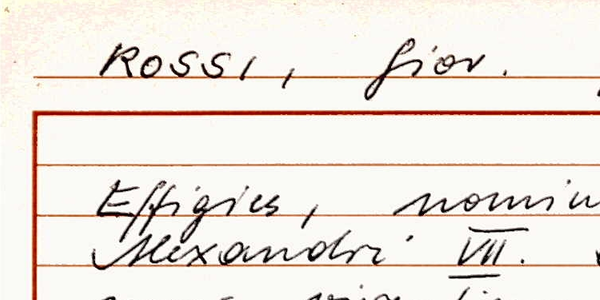 ROSSI, Giov.
Effigies, nomin
Alexandri VII.